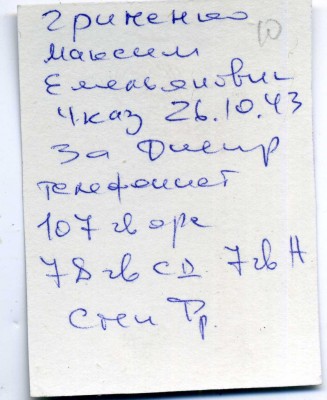 Гриненко
Максим
Емельянович
Указ 26.10.43
За Днепр
телефонист
107 гв арт
78 гв СД 7 гв А
Степ Фр.
10